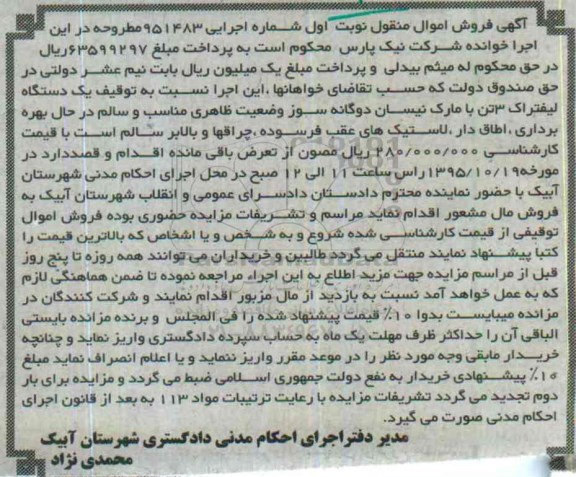 آگهی فروش اموال منقول نوبت اول شماره اجرایی ۹۵۱۴۸۳مطروحه در این
اجرا خوانده شرکت نیک پارس محکوم است به پرداخت مبلغ ۶۳۵۹۹۲۹۷ریال
در حق محکوم له میثم بیدلی و پرداخت مبلغ یک میلیون ریال بابت نیم عشر دولتی در
حق صندوق دولت که حسب تقاضای خواهانها ،این اجرا نسبت به توقیف یک دستگاه
لیفتراک ۳تن با مارک نیسان دوگانه سوز وضعیت ظاهری مناسب و سالم در حال بهره
برداری ،اطاق دار ،لاستیک های عقب فرسوده ،چراقها و بالابر سالم است با قیمت
کارشناسی ۳۸۰/۰۰۰/۰۰۰ ریال مصون از تعرض باقی مانده اقدام و قصددارد در
مورخه۱۳۹۵/۱۰/۱۹راس ساعت ۱۱ الی ۱۲ صبح در محل اجرای احکام مدنی شهرستان
آبیک با حضور نماینده محترم دادستان دادسرای عمومی و انقلاب شهرستان آبیک به
فروش مال مشعور اقدام نماید مراسم و تشریفات مزایده حضوری بوده فروش اموال
توقیفی از قیمت کارشناسی شده شروع و به شخص و یا اشخاص که بالاترین قیمت را
کتبا پیشنهاد نمایند منتقل می گردد طالبین و خریداران می توانند همه روزه تا پنج روز
قبل از مراسم مزایده جهت مزید اطلاع به این اجراء مراجعه نموده تا ضمن هماهنگی لازم
که به عمل خواهد آمد نسبت به بازدید از مال مزبور اقدام نمایند و شرکت کنندگان در
مزانده میبایست بدوا ۱۰٪ قیمت پیشنهاد شده را فی المجلس و برنده مزانده بایستی
الباقی آن را حداکثر ظرف مهلت یک ماه به حساب سپرده دادگستری واریز نماید و چنانچه
خریدار مابقی وجه مورد نظر را در موعد مقرر واریز ننماید و یا اعلام انصراف نماید مبلغ
۱۰٪ پیشنهادی خریدار به نفع دولت جمهوری اسلامی ضبط می گردد و مزایده برای بار
دوم تجدید می گردد تشریفات مزایده با رعایت ترتیبات مواد ۱۱۳ به بعد از قانون اجرای
احکام مدنی صورت می گیرد.
مدیر دفتراجرای احکام مدنی دادگستری شهرستان آبیک
محمدی نژاد